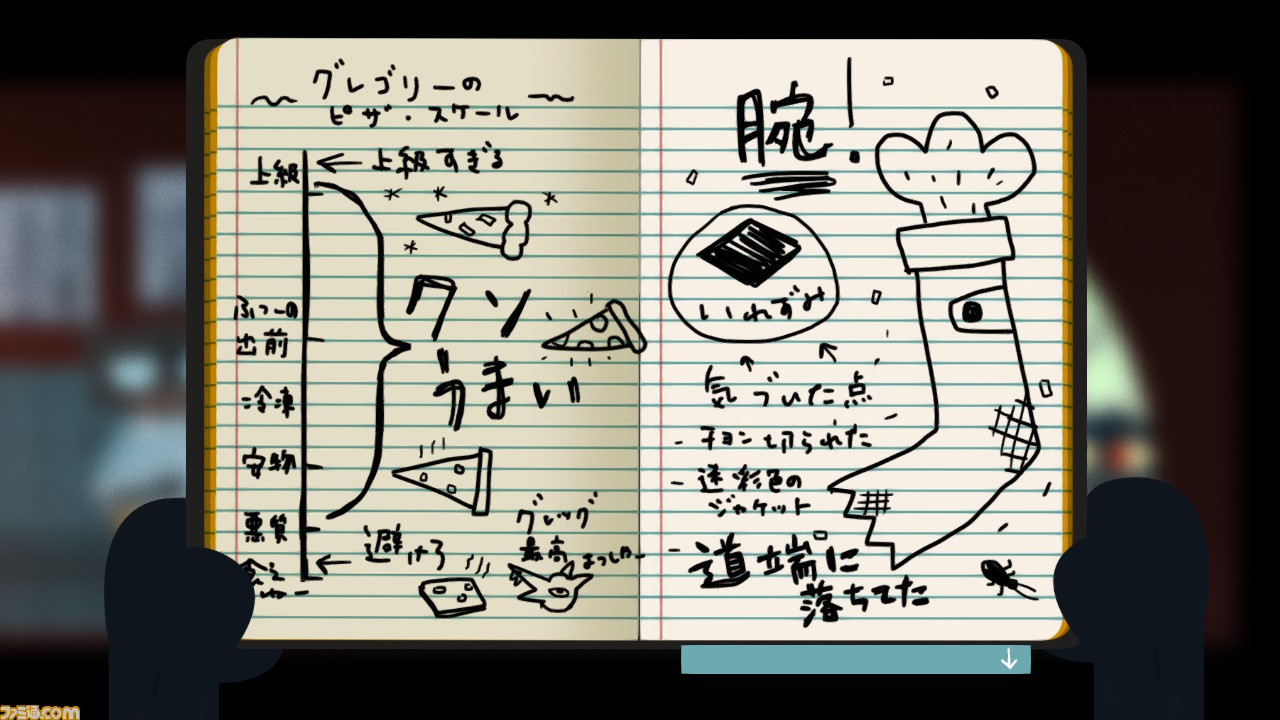 グレゴリーの
ピザ・スケール
上級
上級すぎる
ふつーの
出前
冷凍
安物
悪質
食え
クソ
うまい
避けろ
グレッグ
最高
腕!
いれずみ
気づいた点
- チョン切られた
- 迷彩色の
ジャケット
- 道端に
落ちてた
ファミ通.com